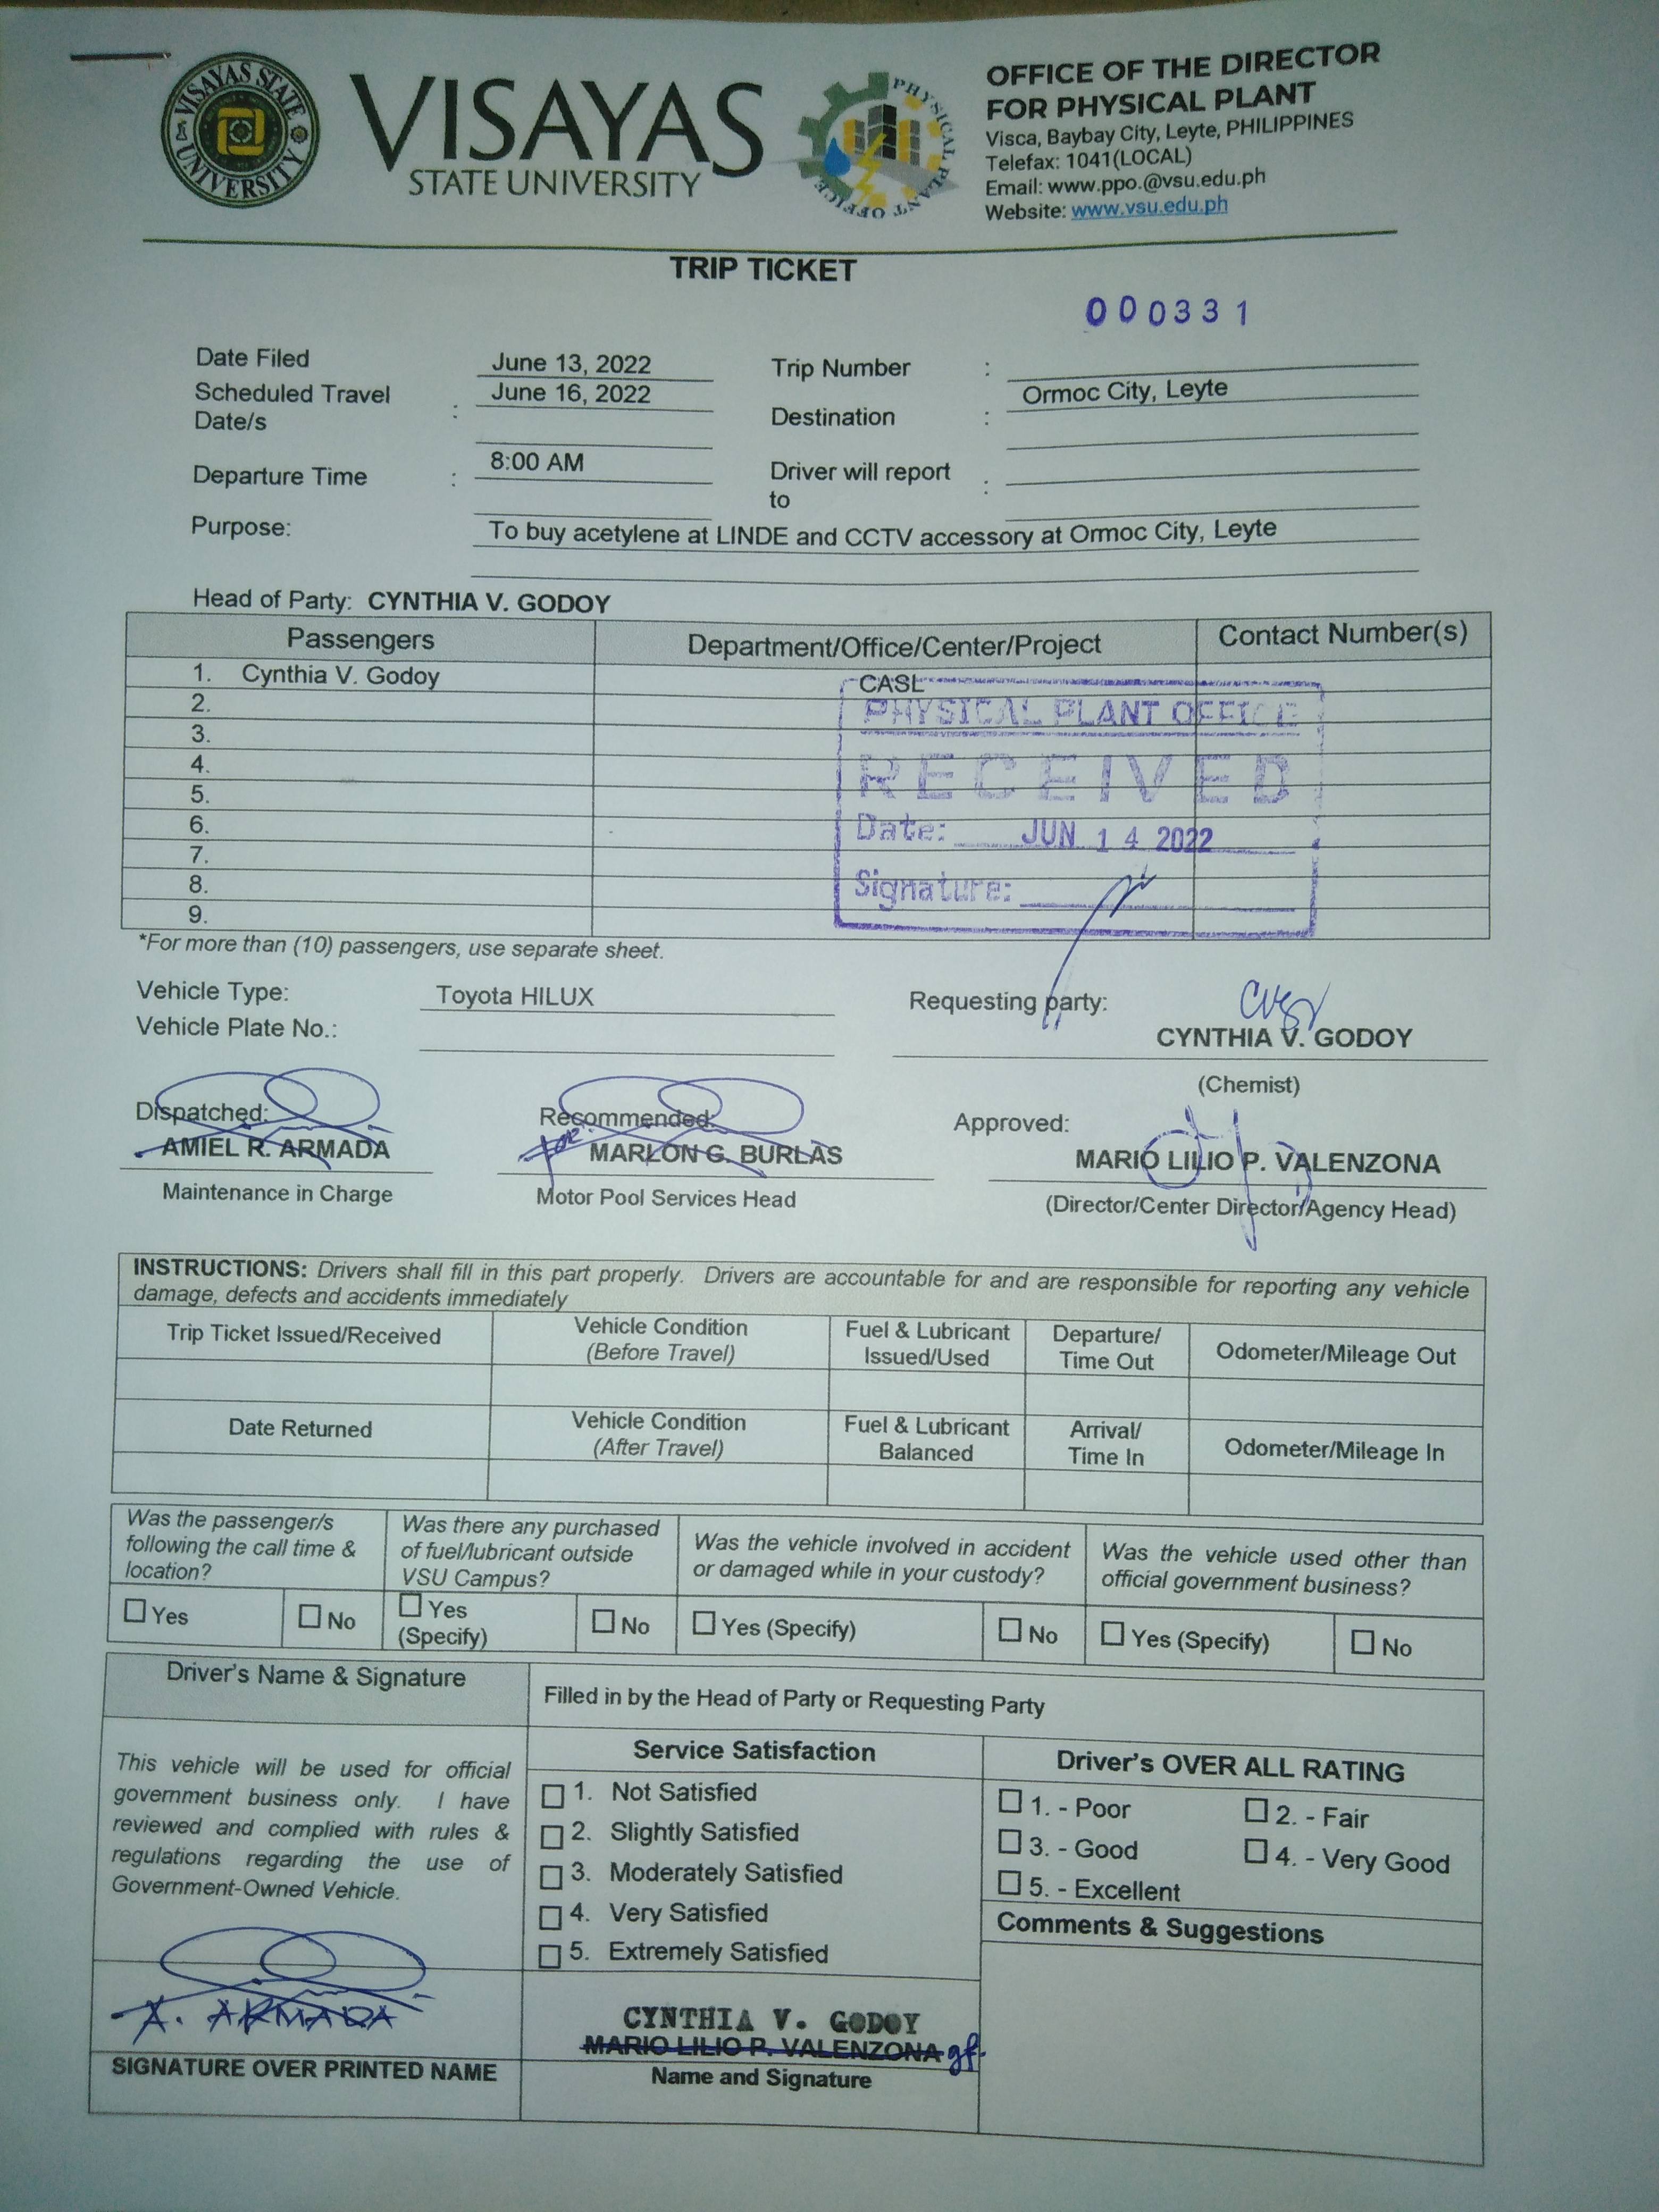 VISAYAS STATE UNIVERSITY
VISAYAS
STATE UNIVERSITY
PHYSICAL PLANT OFFICE
OFFICE OF THE DIRECTOR
FOR PHYSICAL PLANT
Visca, Baybay City, Leyte, PHILIPPINES
Telefax: 1041(LOCAL)
Email: www.ppo.@vsu.edu.ph
Website: www.vsu.edu.ph
TRIP TICKET
000331
Date Filed June 13, 2022 Trip Number :
Scheduled Travel Date/s : June 16, 2022 Destination : Ormoc City, Leyte
Departure Time : 8:00 AM Driver will report to :
Purpose: To buy acetylene at LINDE and CCTV accessory at Ormoc City, Leyte
Head of Party: CYNTHIA V. GODOY
Passengers Department/Office/Center/Project Contact Number(s)
1. Cynthia V. Godoy CASL
2.
3.
4.
5.
6.
7.
8.
9.
PHYSICAL PLANT OFFICE
RECEIVED
Date: JUN 14 2022
Signature:
*For more than (10) passengers, use separate sheet.
Vehicle Type: Toyota HILUX Requesting party:
Vehicle Plate No.: CYNTHIA V. GODOY
(Chemist)
Dispatched: Recommended: Approved:
AMIEL R. ARMADA for: MARLON G. BURLAS MARIO LILIO P. VALENZONA
Maintenance in Charge Motor Pool Services Head (Director/Center Director/Agency Head)
INSTRUCTIONS: Drivers shall fill in this part properly. Drivers are accountable for and are responsible for reporting any vehicle
damage, defects and accidents immediately
Trip Ticket Issued/Received Vehicle Condition (Before Travel) Fuel & Lubricant Issued/Used Departure/ Time Out Odometer/Mileage Out
Date Returned Vehicle Condition (After Travel) Fuel & Lubricant Balanced Arrival/ Time In Odometer/Mileage In
Was the passenger/s following the call time & location? Was there any purchased of fuel/lubricant outside VSU Campus? Was the vehicle involved in accident or damaged while in your custody? Was the vehicle used other than official government business?
Yes No Yes (Specify) No Yes (Specify) No Yes (Specify) No
Driver's Name & Signature
Filled in by the Head of Party or Requesting Party
This vehicle will be used for official
government business only. I have
reviewed and complied with rules &
regulations regarding the use of
Government-Owned Vehicle.
A. ARMADA
SIGNATURE OVER PRINTED NAME
Service Satisfaction
1. Not Satisfied
2. Slightly Satisfied
3. Moderately Satisfied
4. Very Satisfied
5. Extremely Satisfied
CYNTHIA V. GODOY
MARIO LILIO P. VALENZONA
Name and Signature
Driver's OVER ALL RATING
1. - Poor 2. - Fair
3. - Good 4. - Very Good
5. - Excellent
Comments & Suggestions